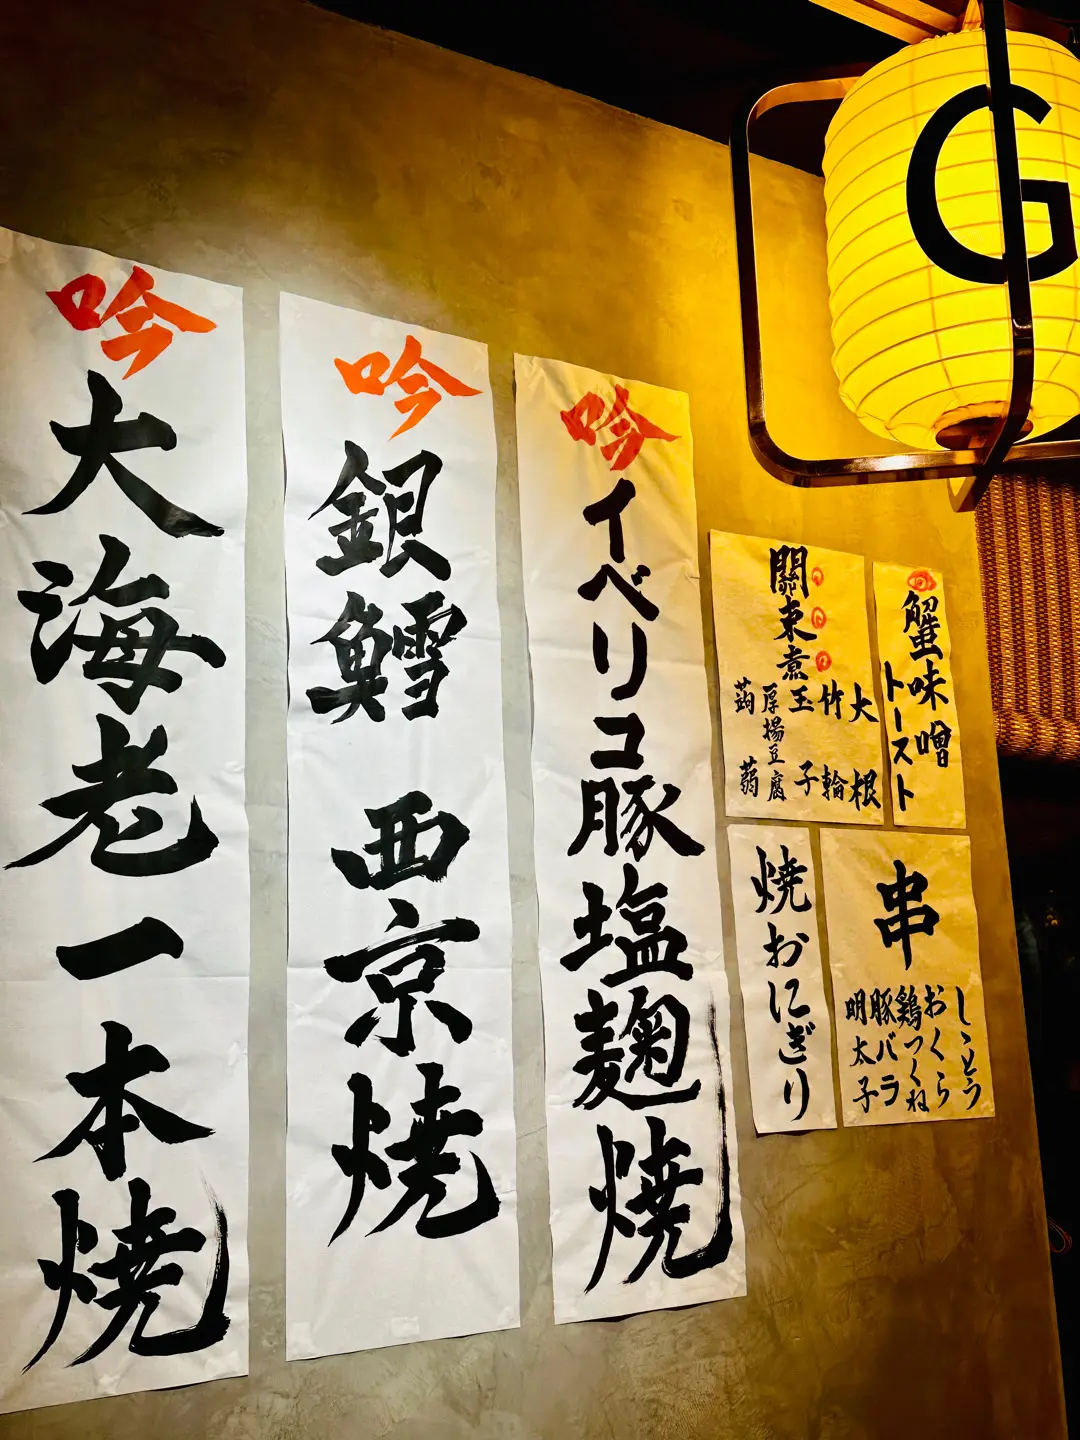 吟
大海老一本焼
吟
銀鱈 西京焼
吟
イベリコ豚塩麹焼
關東煮
大根
竹輪
玉子
厚揚豆腐
蒟蒻
蟹味噌
トースト
焼おにぎり
串
ししとう
おくら
鶏つくね
豚バラ
明太子
G